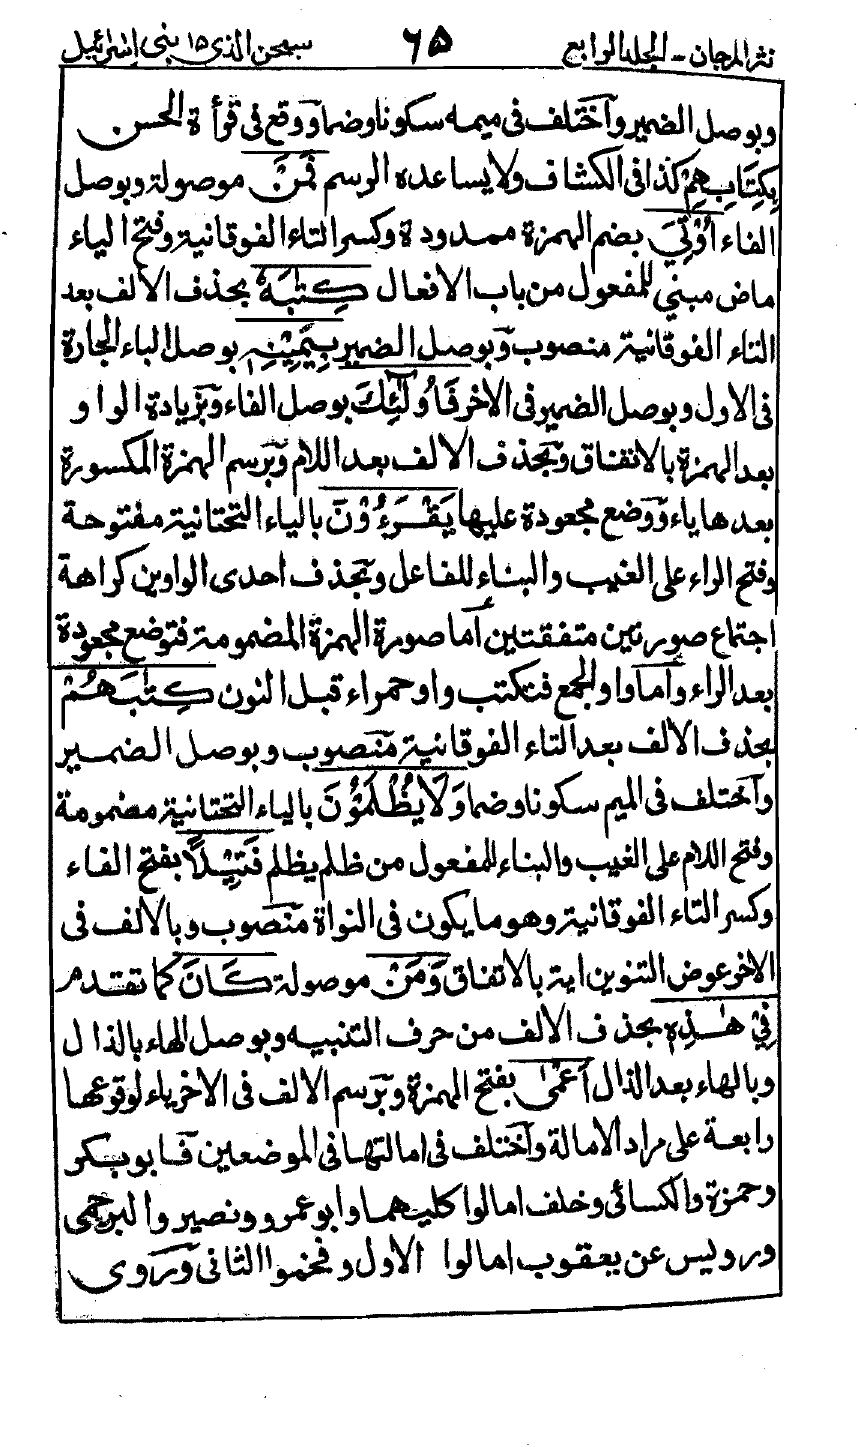 نثر المرجان - المجلد الرابع ٦٥ سبحن الذى ١٥ بنى اسرائيل
وبوصل الضمير وآختلف فى ميمه سكونا وضما ووقع فى قرأة الحسن
بِكِتَابِهِمْ كذا فى الكشاف ولا يساعده الرسم فَمَنْ موصولة وبوصل
الفاء أُوْتِيَ بضم الهمزة ممدودة وكسر التاء الفوقانية وفتح الياء
ماض مبني للمفعول من باب الافعال كِتٰبَهٗ بحذف الالف بعد
التاء الفوقانية منصوب وبوصل الضمير بِيَمِيْنِهٖ بوصل الباء الجارة
فى الاول وبوصل الضمير فى الاخر فَأُولٰٓئِكَ بوصل الفاء وبزيادة الواو
بعد الهمزة بالاتفاق وبحذف الالف بعد اللام وبرسم الهمزة المكسورة
بعدها ياء ووضع مجعودة عليها يَقْرَءُوْنَ بالياء التحتانية مفتوحة
وفتح الراء على الغيب والبناء للفاعل وبحذف احدى الواوين كراهة
اجتماع صورتين متفقتين أما صورة الهمزة المضمومة فتوضع مجعودة
بعد الراء وأما واو الجمع فتكتب واو حمراء قبل النون كِتٰبَهُمْ
بحذف الالف بعد التاء الفوقانية منصوب وبوصل الضمير
وآختلف فى الميم سكونا وضما وَلَا يُظْلَمُوْنَ بالياء التحتانية مضمومة
وفتح اللام على الغيب والبناء للمفعول من ظلم يظلم فَتِيْلًا بفتح الفاء
وكسر التاء الفوقانية وهو ما يكون فى النواة منصوب وبالالف فى
الاخر عوض التنوين اية بالاتفاق وَمَنْ موصولة كَانَ كما تقدم
فِيْ هٰذِهٖ بحذف الالف من حرف التنبيه وبوصل الهاء بالذال
وبالهاء بعد الذال أَعْمٰى بفتح الهمزة وبرسم الالف فى الاخر ياء لوقوعها
رابعة على مراد الامالة وآختلف فى امالتها فى الموضعين فابوبكر
وحمزة والكسائى وخلف امالوا كليهما وابو عمرو ونصير والبرجمى
ورويس عن يعقوب امالوا الاول وفخموا الثانى وروى